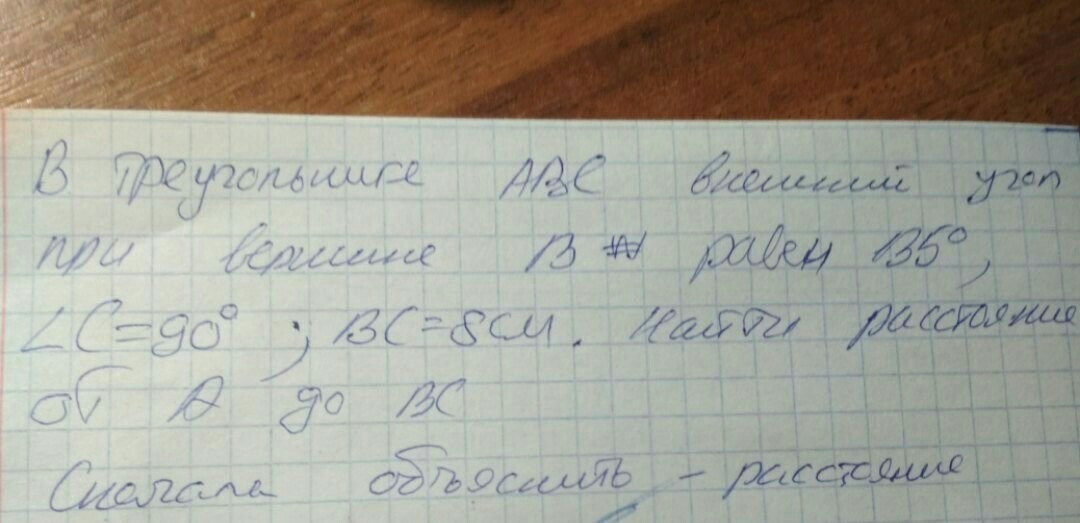 В треугольнике АВС внешний угол
при вершине В равен 135°,
∠C=90°; BC=8см. Найти расстояние
от А до ВС
Сначала объяснить - расстояние